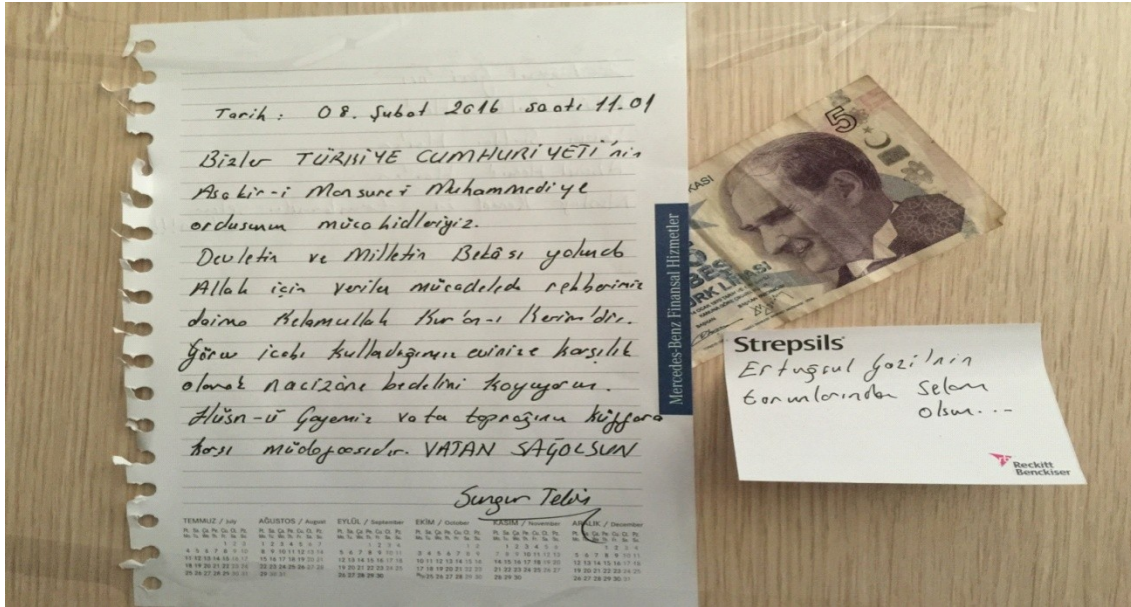 Tarih : 08. Şubat 2016 saati 11.01
Bizler TÜRKİYE CUMHURİYETİ'nin
Asakir-i Mansure-i Muhammediye
ordusunun mücahidleriyiz.
Devletin ve Milletin Bekâsı yolunda
Allah için verilen mücadelede rehberimiz
daima Kelamullah Kur'ân-ı Kerim'dir.
Görev icabı kulladığımız evinize karşılık
olarak nacizâne bedelini koyuyoruz.
Hüsn-ü Gayemiz vatan toprağının küffara
karşı müdafaasıdır. VATAN SAĞOLSUN
Sungur
Mercedes-Benz Finansal Hizmetler
TEMMUZ / July AĞUSTOS / August EYLÜL / September EKİM / October KASIM / November ARALIK / December
5
BEŞ
TÜRK LİRASI
Strepsils
Ertuğrul Gazi'nin
torunlarından Selam
olsun...
Reckitt
Benckiser